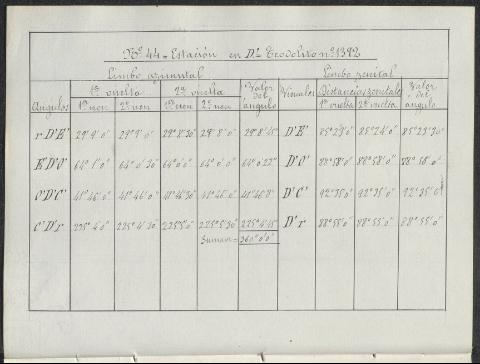 Nº 44 - Estación en D' Teodolito nº 1392
Limbo azimutal Limbo zenital
Angulos 1ª vuelta 2ª vuelta Valor del ángulo Visuales Distancias zenitales Valor del ángulo
1er non 2º non 1er non 2º non 1ª vuelta 2ª vuelta
r D'E' 29° 9' 0" 29° 9' 0" 29° 8' 30" 29° 8' 0" 29° 8' 45" D'E' 85° 23' 0" 85° 24' 0" 85° 23' 30"
E'D'O' 64° 1' 0" 64° 0' 30" 64° 0' 0" 64° 0' 0" 64° 0' 22" D'O' 88° 58' 0" 88° 58' 0" 88° 58' 0"
O'D'C' 41° 46' 0" 41° 46' 0" 41° 46' 30" 41° 46' 0" 41° 46' 8" D'C' 92° 35' 0" 92° 35' 0" 92° 35' 0"
C'D'r 225° 4' 0" 225° 4' 30" 225° 5' 0" 225° 5' 30" 225° 4' 45" D'r 88° 55' 0" 88° 55' 0" 88° 55' 0"
Suman = 360° 0' 0"